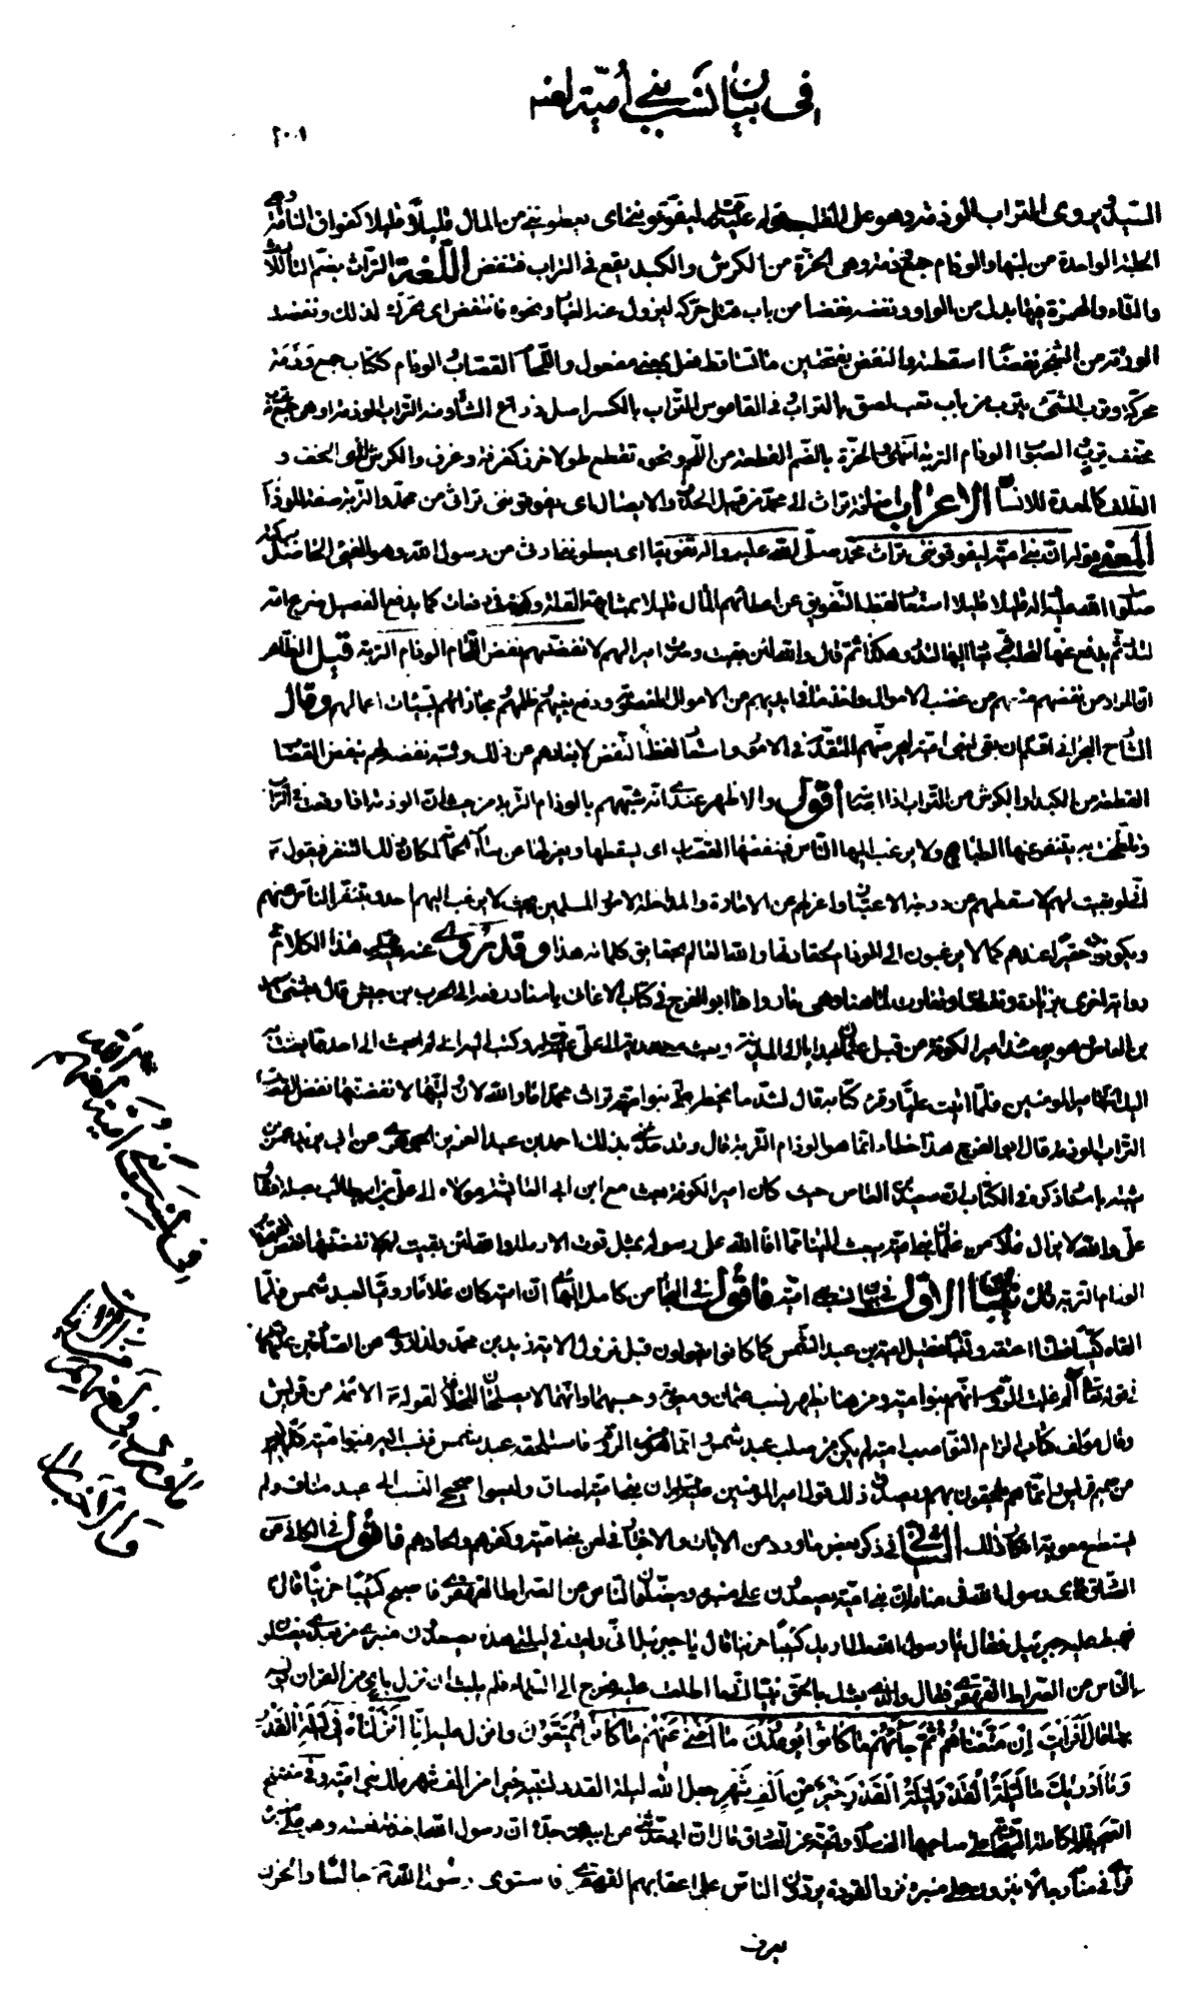 فى بيان نسب بنى أمية لعنه
٢٠٠١
السيد يروى التراب الوذمة وهو على القلب قوله ليفوقوننى اى يعطوننى من المال قليلا قليلا كفواق الناقة وهى
الحلبة الواحدة من لبنها والوذام جمع وذمة وهى الحزة من الكرش والكبد يقع فى التراب فتنفض اللغة التراث بضم التاء
والتاء والهمزة فيها بدل من الواو ونفضه نفضا من باب قتل حركه ليزول عنه الغبار ونحوه فانتفض اى تحرك لذلك ونفضت
الورقة من الشجر نفضا اسقطته والنفض بفتحتين ما تساقط فعل بمعنى مفعول واللحام القصاب الوذام ككتاب جمع وذمة
محركة وترب الشىء يترب من باب تعب لصق بالتراب فى القاموس التراب بالكسر اصل ذراع الشاة ومنه التراب الوذمة او هى جمع
مخفف ترب الصواب الوذام التربة انتهى والحزة بالضم القطعة من اللحم ونحوه تقطع طولا خرز كغرفة وغرف والكرش لذى الخف و
الظلف كالمعدة للانسان الاعراب اضافة تراث الى محمد من قبيل الحذف والايصال اى يفوقوننى تراثى من محمد والتربة صفة للوذام
المعنى قوله ان بنى امية ليفوقوننى تراث محمد صلى الله عليه وآله تفويقا اى يعطوننى ارثى من رسول الله وهو الفىء الحاصل ببركته
صلوات الله عليه وآله قليلا قليلا استعار لفظ التفويق عن اعطائهم المال قليلا بمشابهة القلة وكونه فى دفعات كما يدفع الفصيل ضرع امه
لتدر ثم يدفع عنها لتحلب ثم يعاد اليها لتدر وهكذا ثم قال والله لئن بقيت وصرت اميرا لهم لانفضنهم نفض اللحام الوذام التربة قيل الظاهر
ان المراد من نفضهم منعهم من غصب الاموال واخذ ما فى ايديهم من الاموال المغصوبة ودفع بغيهم وظلمهم ومجازاتهم بسيئات اعمالهم وقال
الشارح البحرانى اقسم ان بقى لبنى امية ليحرمنهم التقدم فى الامور واستعار لفظ النفض لابعادهم عن ذلك وشبه نفضه لهم بنفض القصاب
القطعة من الكبد او الكرش من التراب اذا اصابته أقول والاظهر عندى انه شبههم بالوذام التربة من حيث ان الوذمة اذا وقعت فى التراب
وتلطخت به يتنفر عنها الطباع ولا يرغب اليها الناس فينفضها القصاب اى يسقطها ويعزلها
انى لو بقيت لهم لاسقطهم عن درجة الاعتبار واعزلهم عن الامارة والمداخلة لامور المسلمين بحيث لا يرغب اليهم احد ويتنفر الناس عنهم
ويكونون حقيرا عندهم كما لا يرغبون الى الوذام لحقارتها والله العالم بحقايق كلماته هذا وقد روى عنه هذا الكلام
رواية اخرى بزيادة ونقصان وتفاوت لما هنا وهى ما رواها ابو الفرج فى كتاب الاغانى باسناد رفعه الى الحرب بن حبيش قال بعثنى سعيد
بن العاص وهو يومئذ امير الكوفة من قبل عثمان بهدايا الى المدينة وبعث معى هدية الى على وكتب اليه انى لم ابعث الى احد مما بعثت به
اليك الا الى امير المؤمنين فلما اتيت عليا وقرء كتابه قال لشد ما يخطر على بنو امية تراث محمد اما والله لان وليتها لانفضنها نفض القصاب
التراب الوذمة قال ابو الفرج هذا خطاء انما هو الوذام التربة قال وقد حدثنى بذلك احمد بن عبد العزيز الجوهرى عن ابى زيد عمر بن
شبة باسناد ذكره فى الكتاب ان سعيد بن العاص حيث كان امير الكوفة بعث مع ابن ابى عايشة مولاه الى على بن ابى طالب بصلة فقال
على والله لا يزال غلام من غلمان بنى امية يبعث الينا مما افاء الله على رسوله بمثل قوت الارملة والله لئن بقيت لها لانفضنها نفض القصاب
الوذام التربة تنبيهات الاول فى بيان نسب بنى امية فاقول فى البحار من كامل البهائى ان امية كان غلاما روميا لعبد الشمس فلما
القاه كيسا فطنا اعتقه وتبناه فقيل امية بن عبد الشمس كما كانوا يقولون قبل نزول الاية زيد بن محمد ولذا روى عن الصادقين
فى قوله تعالى الم غلبت الروم انهم بنو امية ومن هنا يظهر نسب عثمان ومعوية وحسبهما وانهما لا يصلحان للخلافة لقوله الائمة من قريش
وقال مؤلف كتاب الزام النواصب امية لم يكن من صلب عبد شمس وانما هو من الروم فاستلحقه عبد شمس فنسب اليه فبنو امية كلهم ليس
من صميم قريش وانما هم يلحقون بهم ويصدق ذلك قول امير المؤمنين ان بنى امية لصاق وليسوا صحيحى النسب الى عبد مناف ولم
يستطع معوية انكار ذلك الثانى فى ذكر بعض ما ورد من الايات والاخبار فى لعن بنى امية وكفرهم والحادهم فاقول فى الكافى عن
الصادق رأى رسول الله فى منامه ان بنى امية يصعدون على منبره ويضلون الناس عن الصراط القهقرى فاصبح كئيبا حزينا قال
فهبط عليه جبرئيل فقال يا رسول الله ما لى اريك كئيبا حزينا قال يا جبرئيل انى رأيت بنى امية فى ليلتى هذه يصعدون منبرى من بعدى يضلون
الناس عن الصراط القهقرى فقال والذى بعثك بالحق نبيا انى ما اطلعت عليه فعرج الى السماء فلم يلبث ان نزل بآى من القران يونسه
بها قال أفرأيت إن متعناهم سنين ثم جاءهم ما كانوا يوعدون ما أغنى عنهم ما كانوا يمتعون وانزل عليه إنا أنزلناه فى ليلة القدر
وما أدريك ما ليلة القدر ليلة القدر خير من ألف شهر جعل الله ليلة القدر لنبيه خيرا من الف شهر ملك بنى امية وفى مفتتح
الصحيفة الكاملة السجادية على صاحبها الصلاة والتحية عن الصادق قال ان ابى حدثنى عن ابيه عن جده ان رسول الله اخذته نعسة وهو على منبره
فرأى فى منامه رجالا ينزون على منبره نزو القردة يردون الناس على اعقابهم القهقرى فاستوى رسول الله جالسا والحزن
يعرف
فى نسب بنى أمية لعنهم